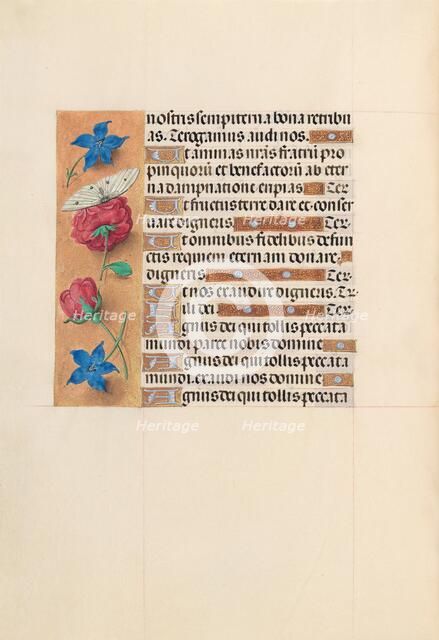 nostris sempiterna bona retribu
as. Te rogamus audi nos.
Et animas nr̄as fratrū pro
pinquorū et benefactorū ab eter
na dampnatione eripias Te r̄.
Et fructus terre dare et conser
uare digneris. Te r̄.
Et omnibus fidelibus defun
ctis requiem eternam donare
digneris. Te r̄.
Et nos exaudire digneris. Te r̄.
fili dei Te r̄.
Agnus dei qui tollis peccata
mundi parce nobis domine
Agnus dei qui tollis peccata
mundi. exaudi nos domine
Agnus dei qui tollis peccata
Heritage
Heritage
Heritage
Heritage
Heritage
Heritage